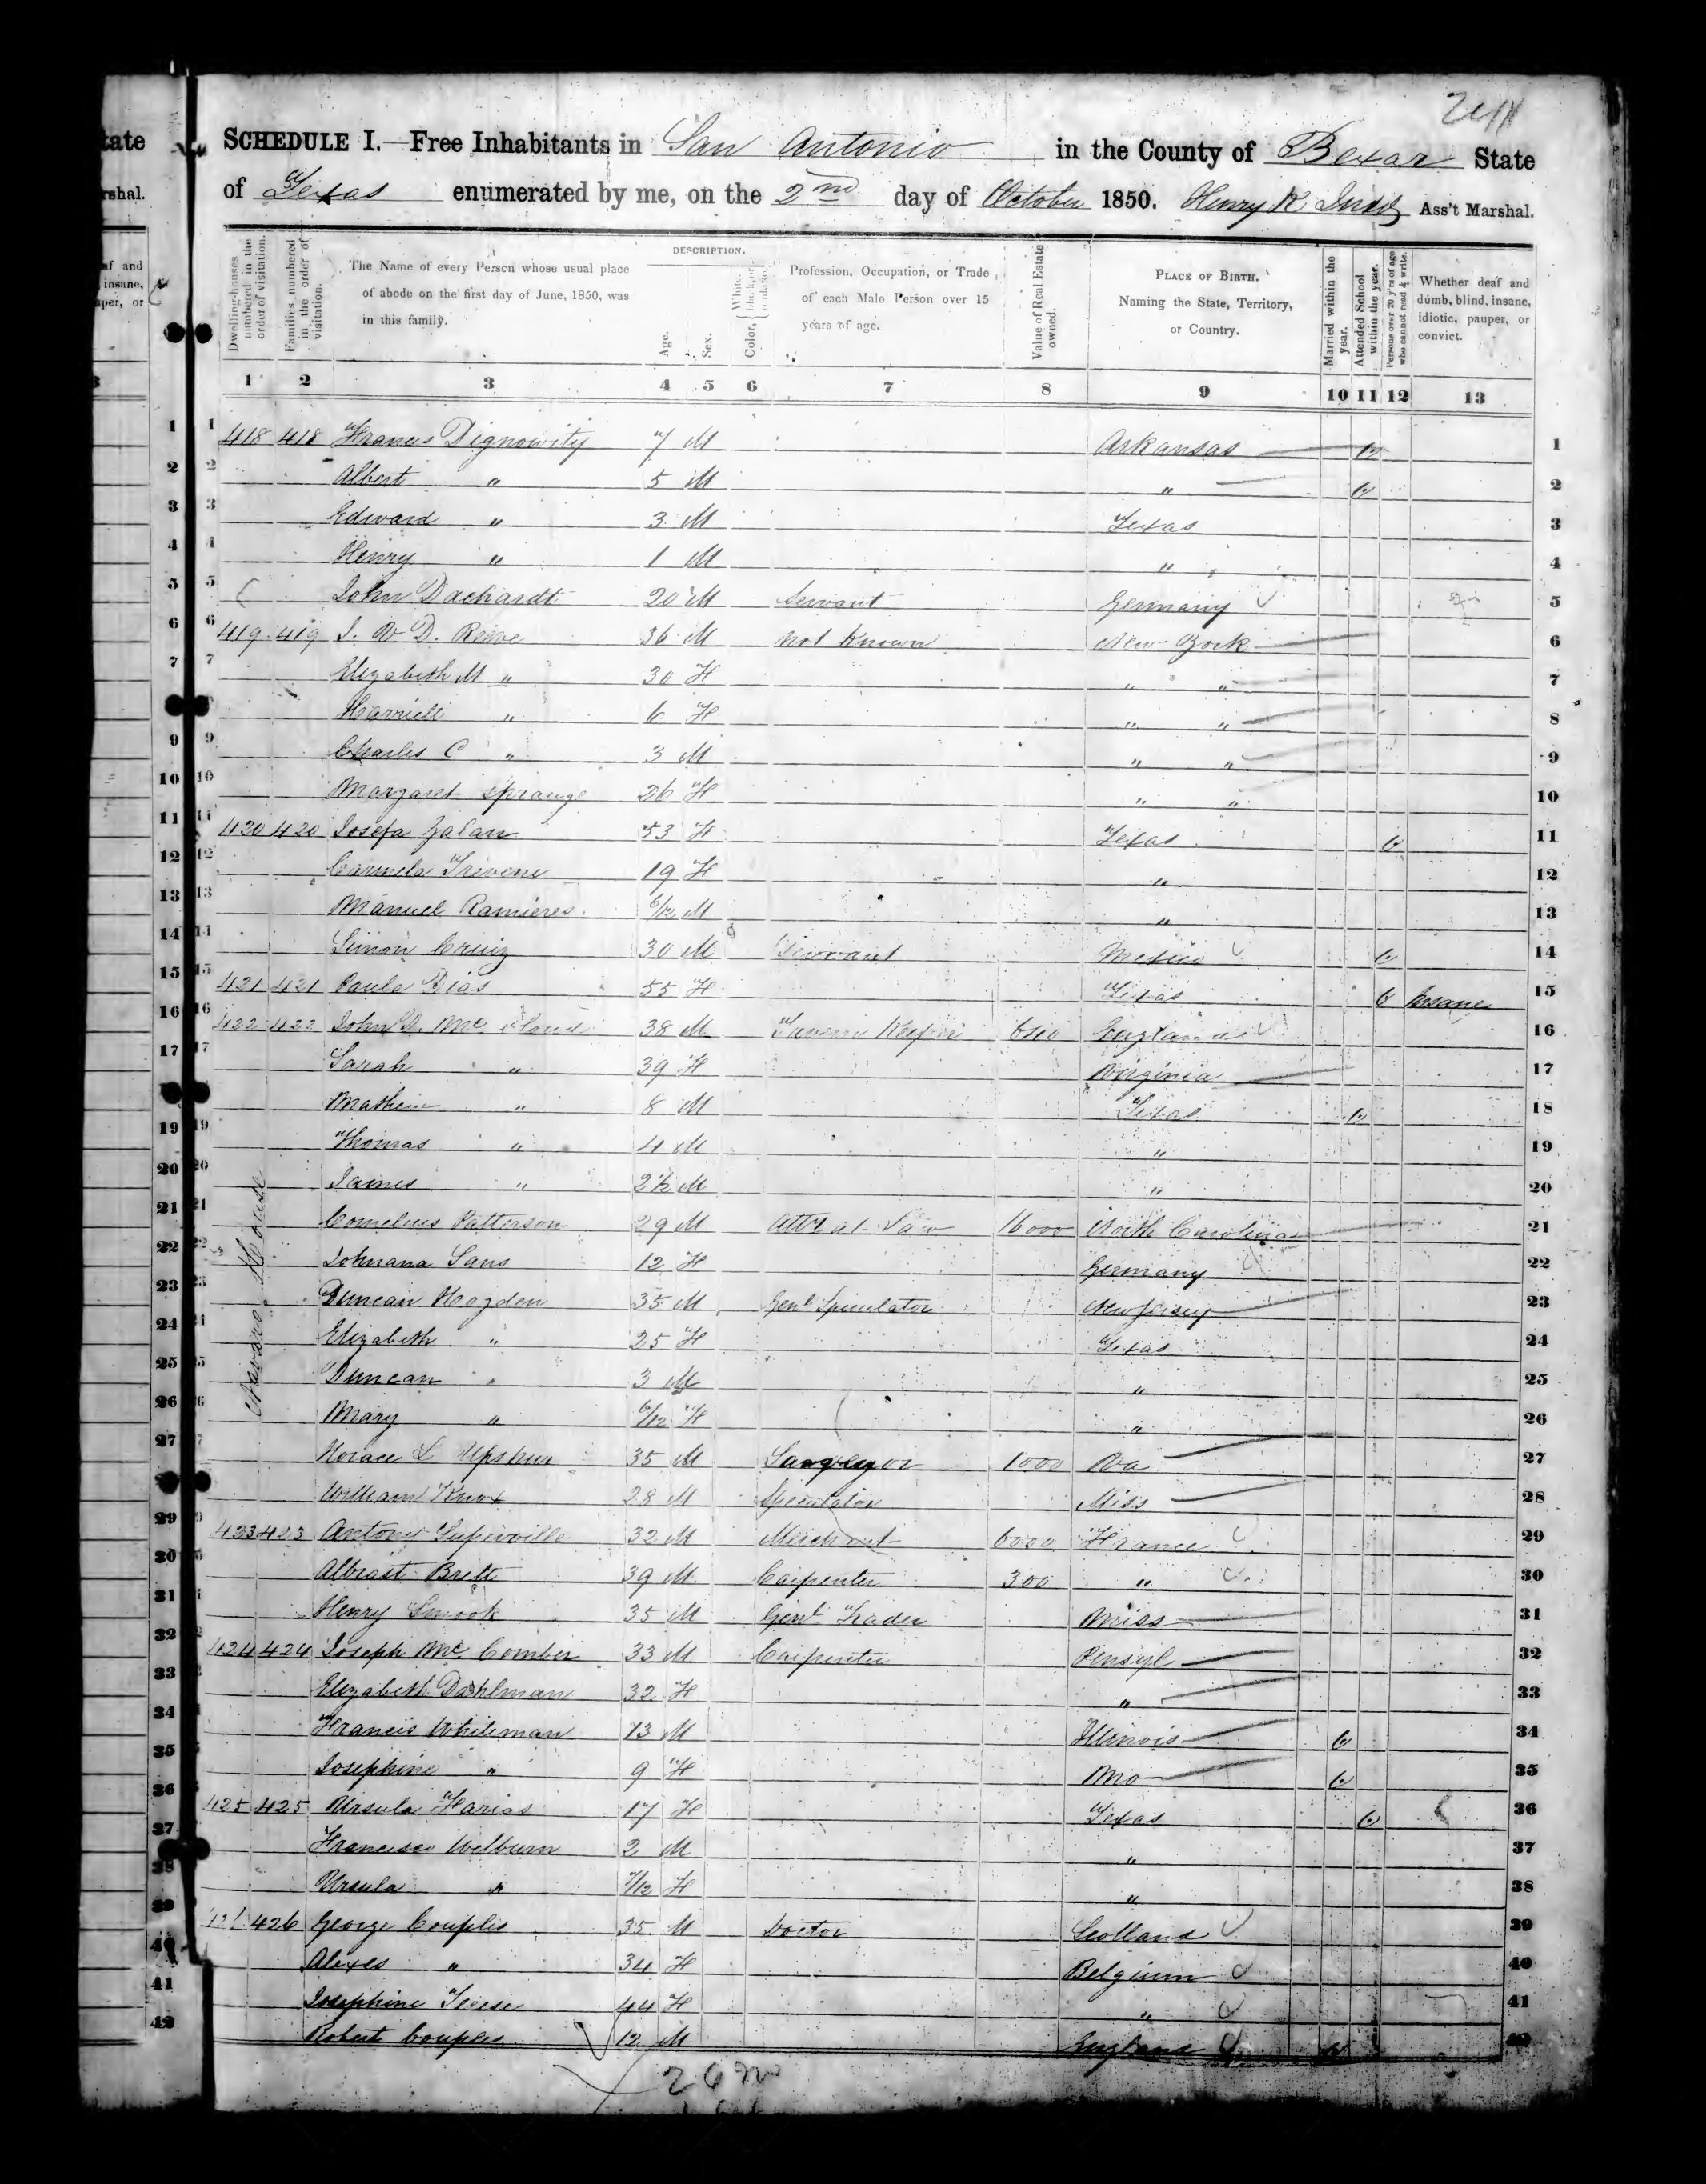 SCHEDULE I.—Free Inhabitants in San Antonio in the County of Bexar State
of Texas enumerated by me, on the 2nd day of October 1850. Henry R Ass't Marshal.
Dwelling-houses numbered in the order of visitation.
Families numbered in the order of visitation.
The Name of every Person whose usual place of abode on the first day of June, 1850, was in this family.
DESCRIPTION.
Age.
Sex.
Color, White, black, or mulatto.
Profession, Occupation, or Trade of each Male Person over 15 years of age.
Value of Real Estate owned.
PLACE OF BIRTH. Naming the State, Territory, or Country.
Married within the year.
Attended School within the year.
Persons over 20 y'rs of age who cannot read & write.
Whether deaf and dumb, blind, insane, idiotic, pauper, or convict.
1 2 3 4 5 6 7 8 9 10 11 12 13
1 418 418 Francis Dignowity 7 M Arkansas 1
2 Albert " 5 M " 2
3 Edward " 3 M Texas 3
4 Henry " 1 M " 4
5 John Dachardt 20 M Servant Germany 5
6 419 419 J. D. Reeve 36 M not known New York 6
7 Elizabeth M " 30 F " " 7
8 Harriett " 6 F " " 8
9 Charles C " 3 M " " 9
10 Margaret Sprange 26 F " " 10
11 420 420 Josefa Zalan 53 F Texas 11
12 Carmela 19 F " 12
13 Manuel Ramieres 6/12 M " 13
14 Simon Cruiz 30 M Servant Mexico 14
15 421 421 Paula Dias 55 F Texas Insane 15
16 422 422 John D. Mc 38 M Tavern Keeper England 16
17 Sarah " 39 F Virginia 17
18 Mathew " 8 M Texas 18
19 Thomas " 4 M " 19
20 James " 2 M " 20
21 Cornelius Patterson 29 M Atty at Law 16000 North Carolina 21
22 Johnana Sans 12 F Germany 22
23 Duncan Hogden 35 M Genl Speculator New Jersey 23
24 Elizabeth " 25 F Texas 24
25 Duncan " 3 M " 25
26 Mary " 6/12 F " 26
Navaro House
27 Horace L Upshur 35 M 1000 Va 27
28 William Knox 28 M Speculator Miss 28
29 423 423 Antony Superville 32 M Merchant 6000 France 29
30 Brett 39 M Carpenter 300 " 30
31 Henry Smook 35 M Genl Trader Miss 31
32 424 424 Joseph Mc Comber 33 M Carpenter Pensyl 32
33 Elizabeth Dahlman 32 F " 33
34 Francis Whiteman 13 M Illinois 34
35 Josephine " 9 F Mo 35
36 425 425 Ursula Farias 17 F Texas 36
37 Francisco Welburn 2 M " 37
38 Ursula " 7/12 F " 38
39 426 George Couples 35 M Doctor Scotland 39
40 Alexes " 34 F Belgium 40
41 Josephine Terese 44 F " 41
42 Robert Couples 12 M England 42